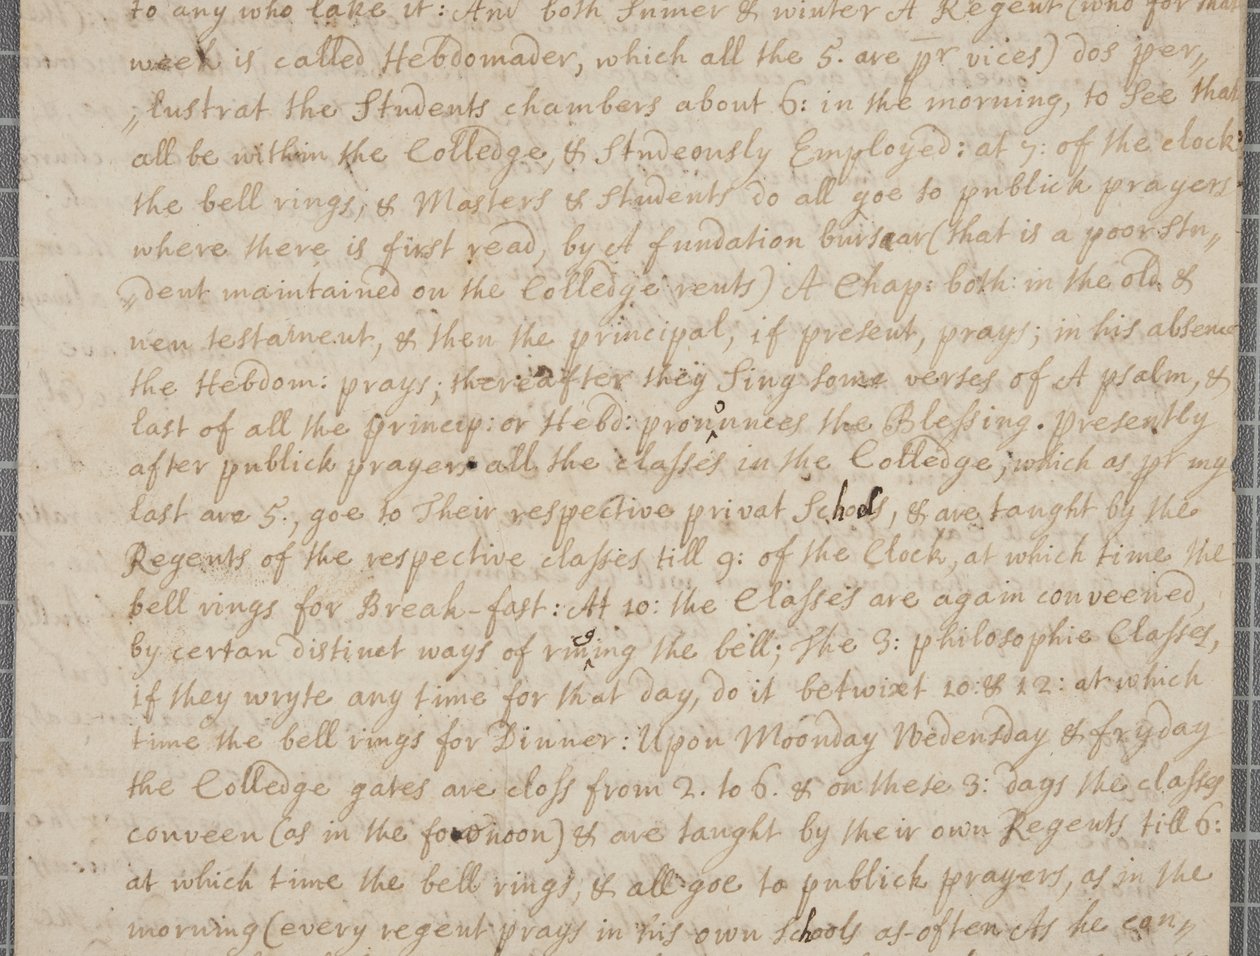 to any who lake it: And both Sumer & winter A Regent (who for that
week is called Hebdomader, which all the 5. are pr vices) dos per„
„lustrat the Students chambers about 6: in the morning, to See that
all be within the Colledge, & Studeously Employed: at 7: of the clock:
the bell rings, & Masters & Students do all goe to publick prayers
where there is first read, by A fundation bursaar (that is a poor stu„
„dent maintained on the Colledge rents) A Chap: both in the old &
new testament, & then the principal, if present, prays; in his absence
the Hebdom: prays; thereafter they Sing some verses of A psalm, &
last of all the princip: or Hebd: pronounces the Blessing. presently
after publick prayers all the classes in the Colledge, which as pr my
last are 5., goe to Their respective privat Schols, & are taught by the
Regents of the respective classes till 9: of the Clock, at which time the
bell rings for Break-fast: At 10: the Classes are again conveened,
by certan distinct ways of ringing the bell; The 3: philosophie Classes,
if they wryte any time for that day, do it betwixt 10: & 12: at which
time the bell rings for Dinner: Upon Moonday Wedensday & fryday
the Colledge gates are closs from 2. to 6. & on these 3: days the classes
conveen (as in the foornoon) & are taught by their own Regents till 6:
at which time the bell rings, & all goe to publick prayers, as in the
morning (every regent prays in his own Schools as often As he con„